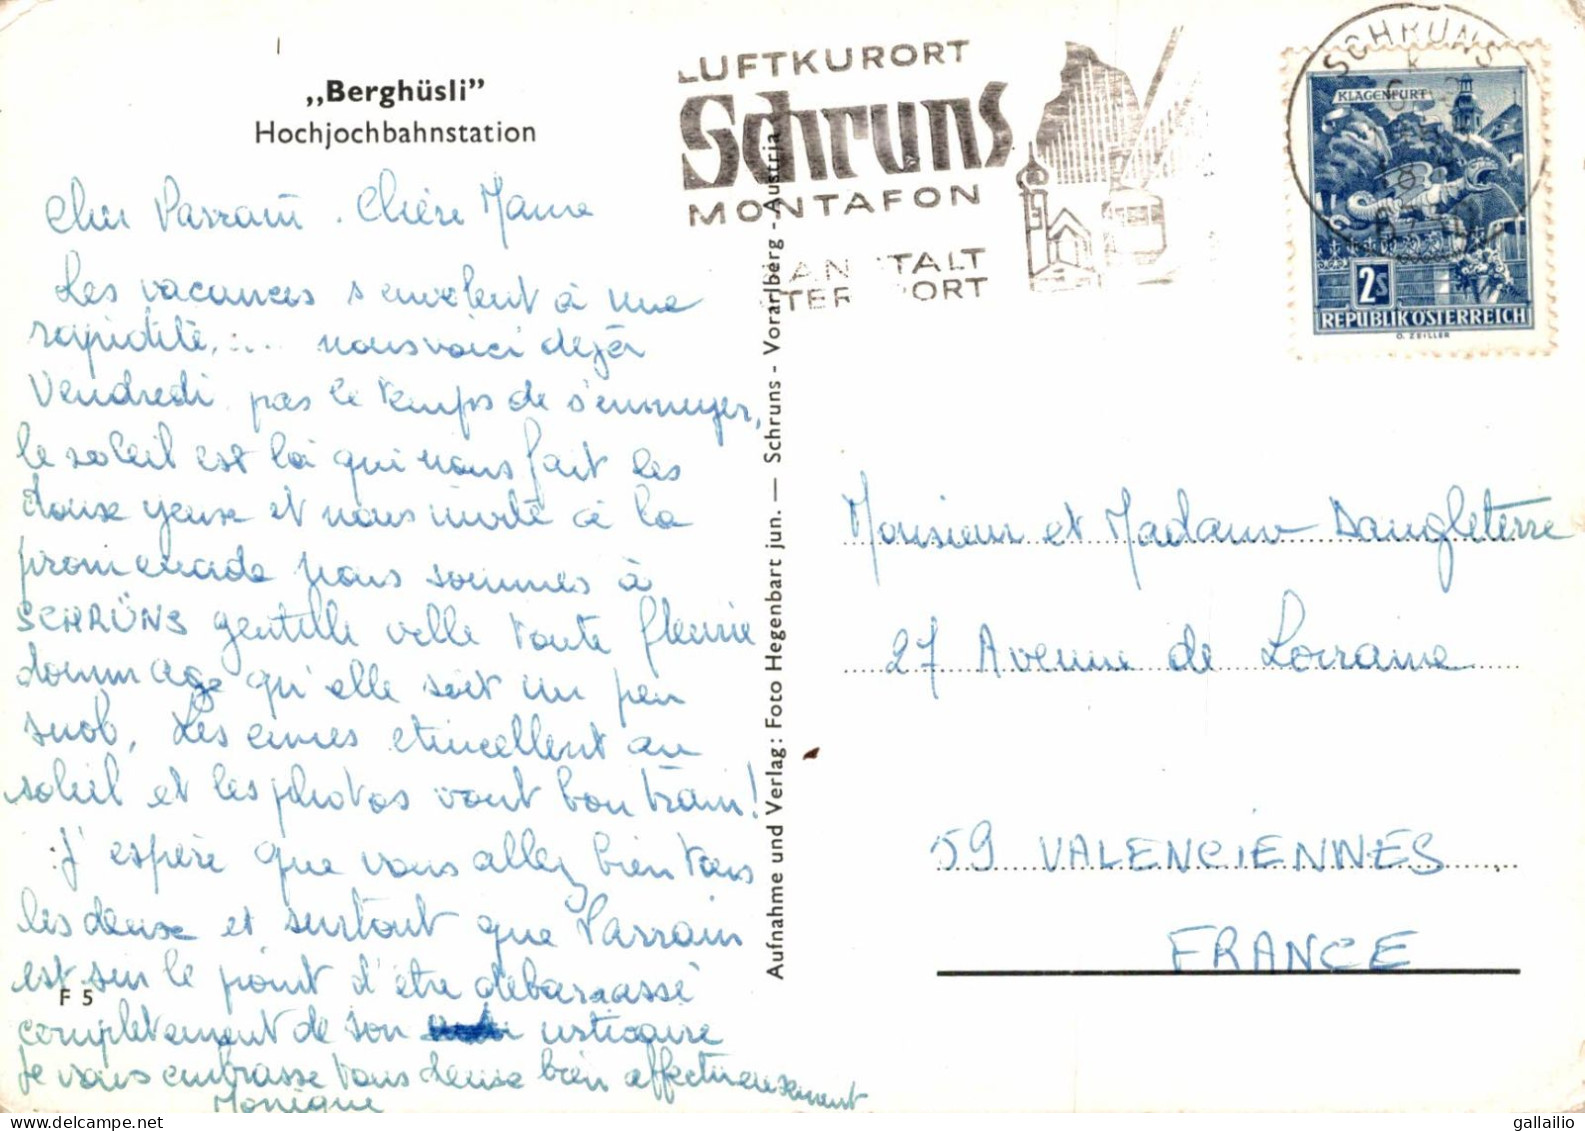 „Berghüsli”
Hochjochbahnstation
Cher Parrain . Chère Marraine
Les vacances s'envolent à une
rapidité, ... nous voici déjà
Vendredi, pas le temps de s'ennuyer,
le soleil est là qui nous fait les
doux yeux et nous invite à la
promenade nous sommes à
SCHRÜNS gentille ville toute fleurie
dommage qu'elle soit un peu
snob, Les cimes etincellent au
soleil et les photos vont bon train!
J'espère que vous allez bien tous
les deux et surtout que Parrain
est sur le point d'être debarrassé
completement de son urticaire
Je vous embrasse tous deux bien affectueusement
Monique
F 5
Aufnahme und Verlag: Foto Hegenbart jun. — Schruns - Vorarlberg - Austria
LUFTKURORT
Schruns
MONTAFON
ANSTALT
TER PORT
SCHRUNS
KLAGENFURT
2S
REPUBLIK ÖSTERREICH
O. ZEILLER
Monsieur et Madame Dangleterre
27 Avenue de Lorraine
59 VALENCIENNES
FRANCE
gallailio